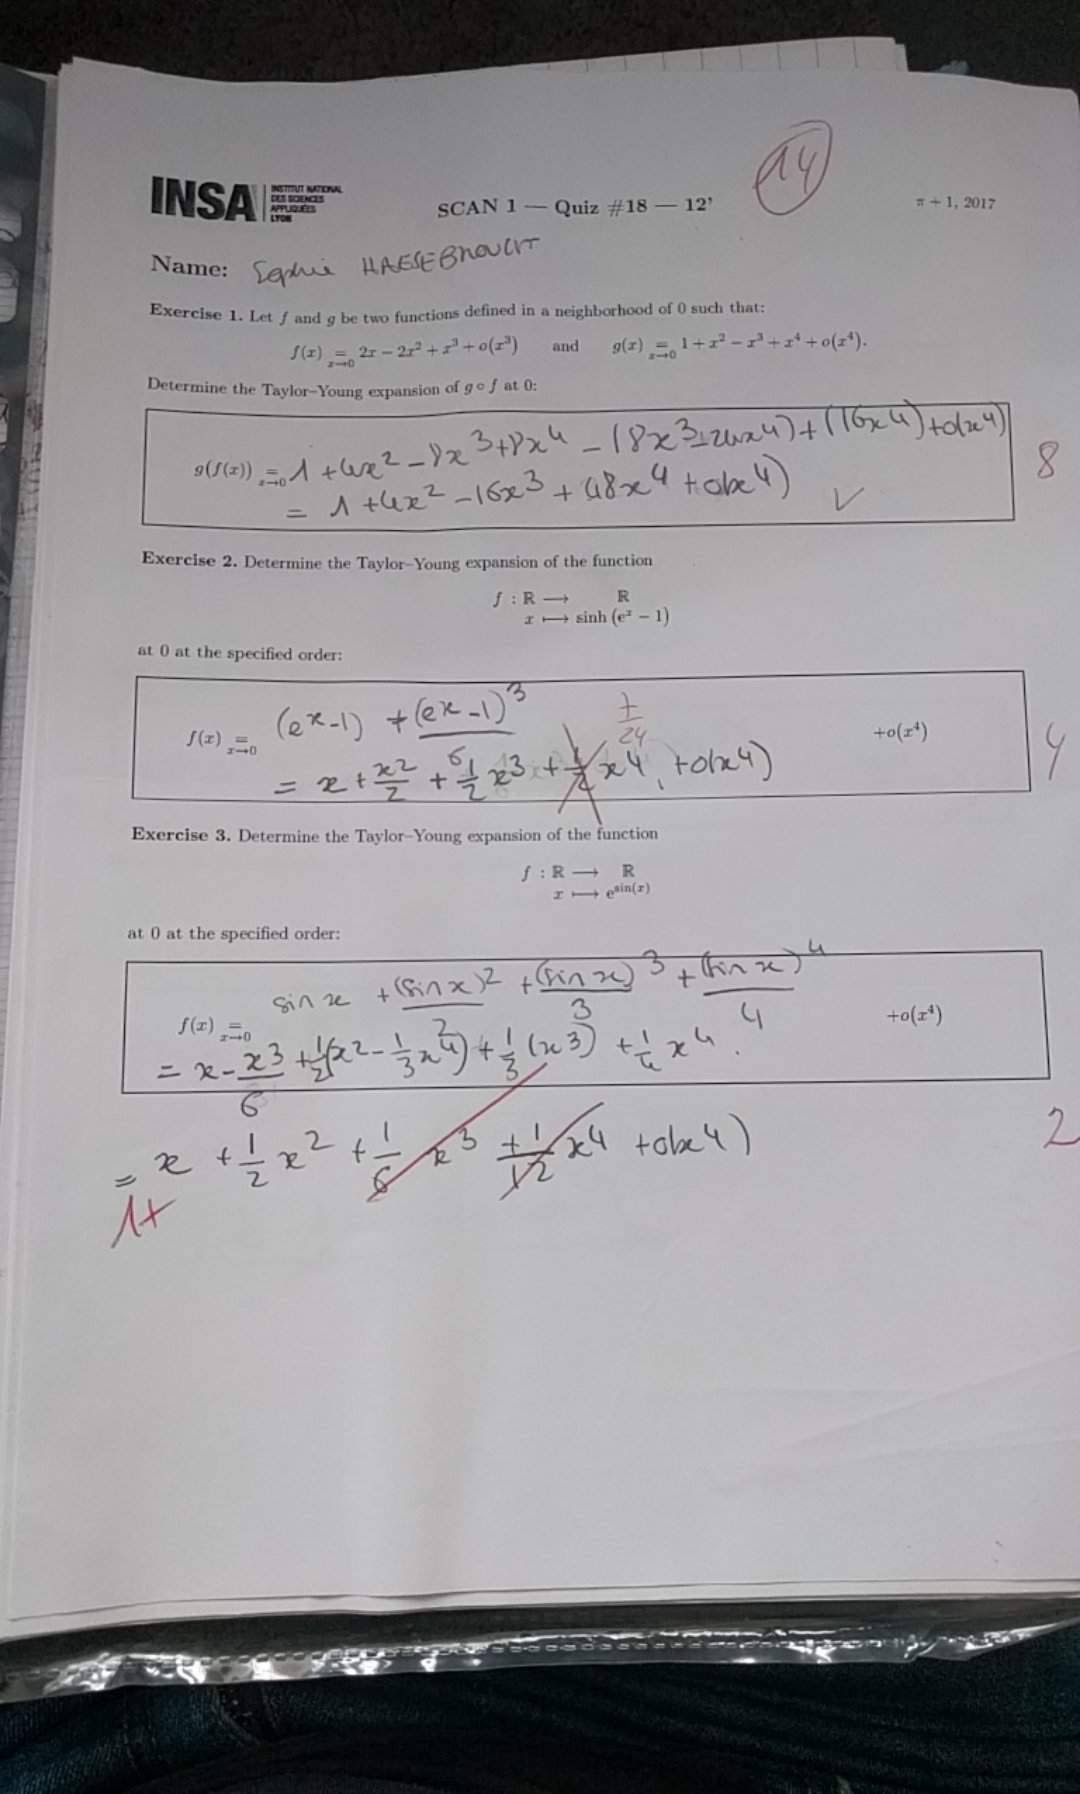 14
INSA INSTITUT NATIONAL DES SCIENCES APPLIQUÉES LYON
SCAN 1 — Quiz #18 — 12'
π + 1, 2017
Name: Sophie HAESEBROUCK
Exercise 1. Let f and g be two functions defined in a neighborhood of 0 such that:
f(x) =_{x→0} 2x − 2x² + x³ + o(x³) and g(x) =_{x→0} 1 + x² − x³ + x⁴ + o(x⁴).
Determine the Taylor–Young expansion of g ∘ f at 0:
g(f(x)) =_{x→0} 1 + 4x² − 8x³ + 8x⁴ − (8x³ − 24x⁴) + (16x⁴) + o(x⁴)
= 1 + 4x² − 16x³ + 48x⁴ + o(x⁴) ✓
8
Exercise 2. Determine the Taylor–Young expansion of the function
f : R → R
x ↦ sinh (eˣ − 1)
at 0 at the specified order:
f(x) =_{x→0} (eˣ − 1) + (eˣ − 1)³/6 +o(x⁴)
7/24
= x + x²/2 + 1/2 x³ + x⁴ + o(x⁴)
4
Exercise 3. Determine the Taylor–Young expansion of the function
f : R → R
x ↦ e^{sin(x)}
at 0 at the specified order:
f(x) =_{x→0} sin x + (sin x)²/2 + (sin x)³/3 + (sin x)⁴/4 +o(x⁴)
= x − x³/6 + 1/2(x² − 1/3 x⁴) + 1/3 (x³) + 1/4 x⁴.
= x + 1/2 x² + 1/6 x³ + 1/12 x⁴ + o(x⁴)
2
1+